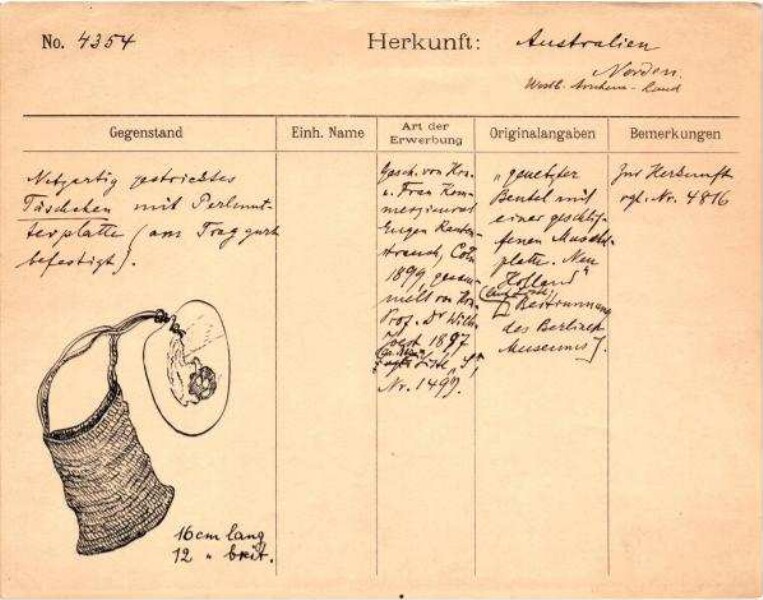 No. 4354
Herkunft: Australien
Norden.
Westl. Arnhem-Land
Gegenstand
Einh. Name
Art der
Erwerbung
Originalangaben
Bemerkungen
Netzartig gestricktes
Täschchen mit Perlmut-
terplatte (am Traggurt
befestigt).
16 cm lang
12 " breit.
Gesch. von Hrn.
u. Frau Kom-
merzienrat
Eugen Rauten-
strauch, Cöln
1899, gesam-
melt von Hrn.
Prof. Dr Wilh.
Joest 1897
Liste
Nr. 1499.
"genetzter
Beutel mit
einer geschlif-
fenen Muschel-
platte. Neu
Holland"
Bestimmung
des Berliner
Museums].
Zur Herkunft
vgl. Nr. 4816